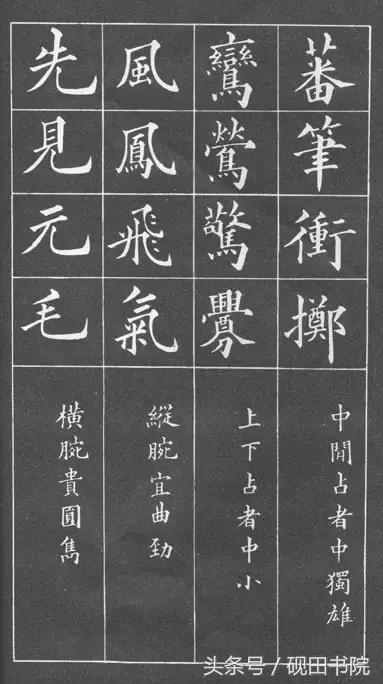 蕃筆衝擲
中閒占者中獨雄
鸞鶯驚釁
上下占者中小
風鳳飛氣
縱腕宜曲勁
先見元毛
橫腕貴圓雋
头条号/砚田书院